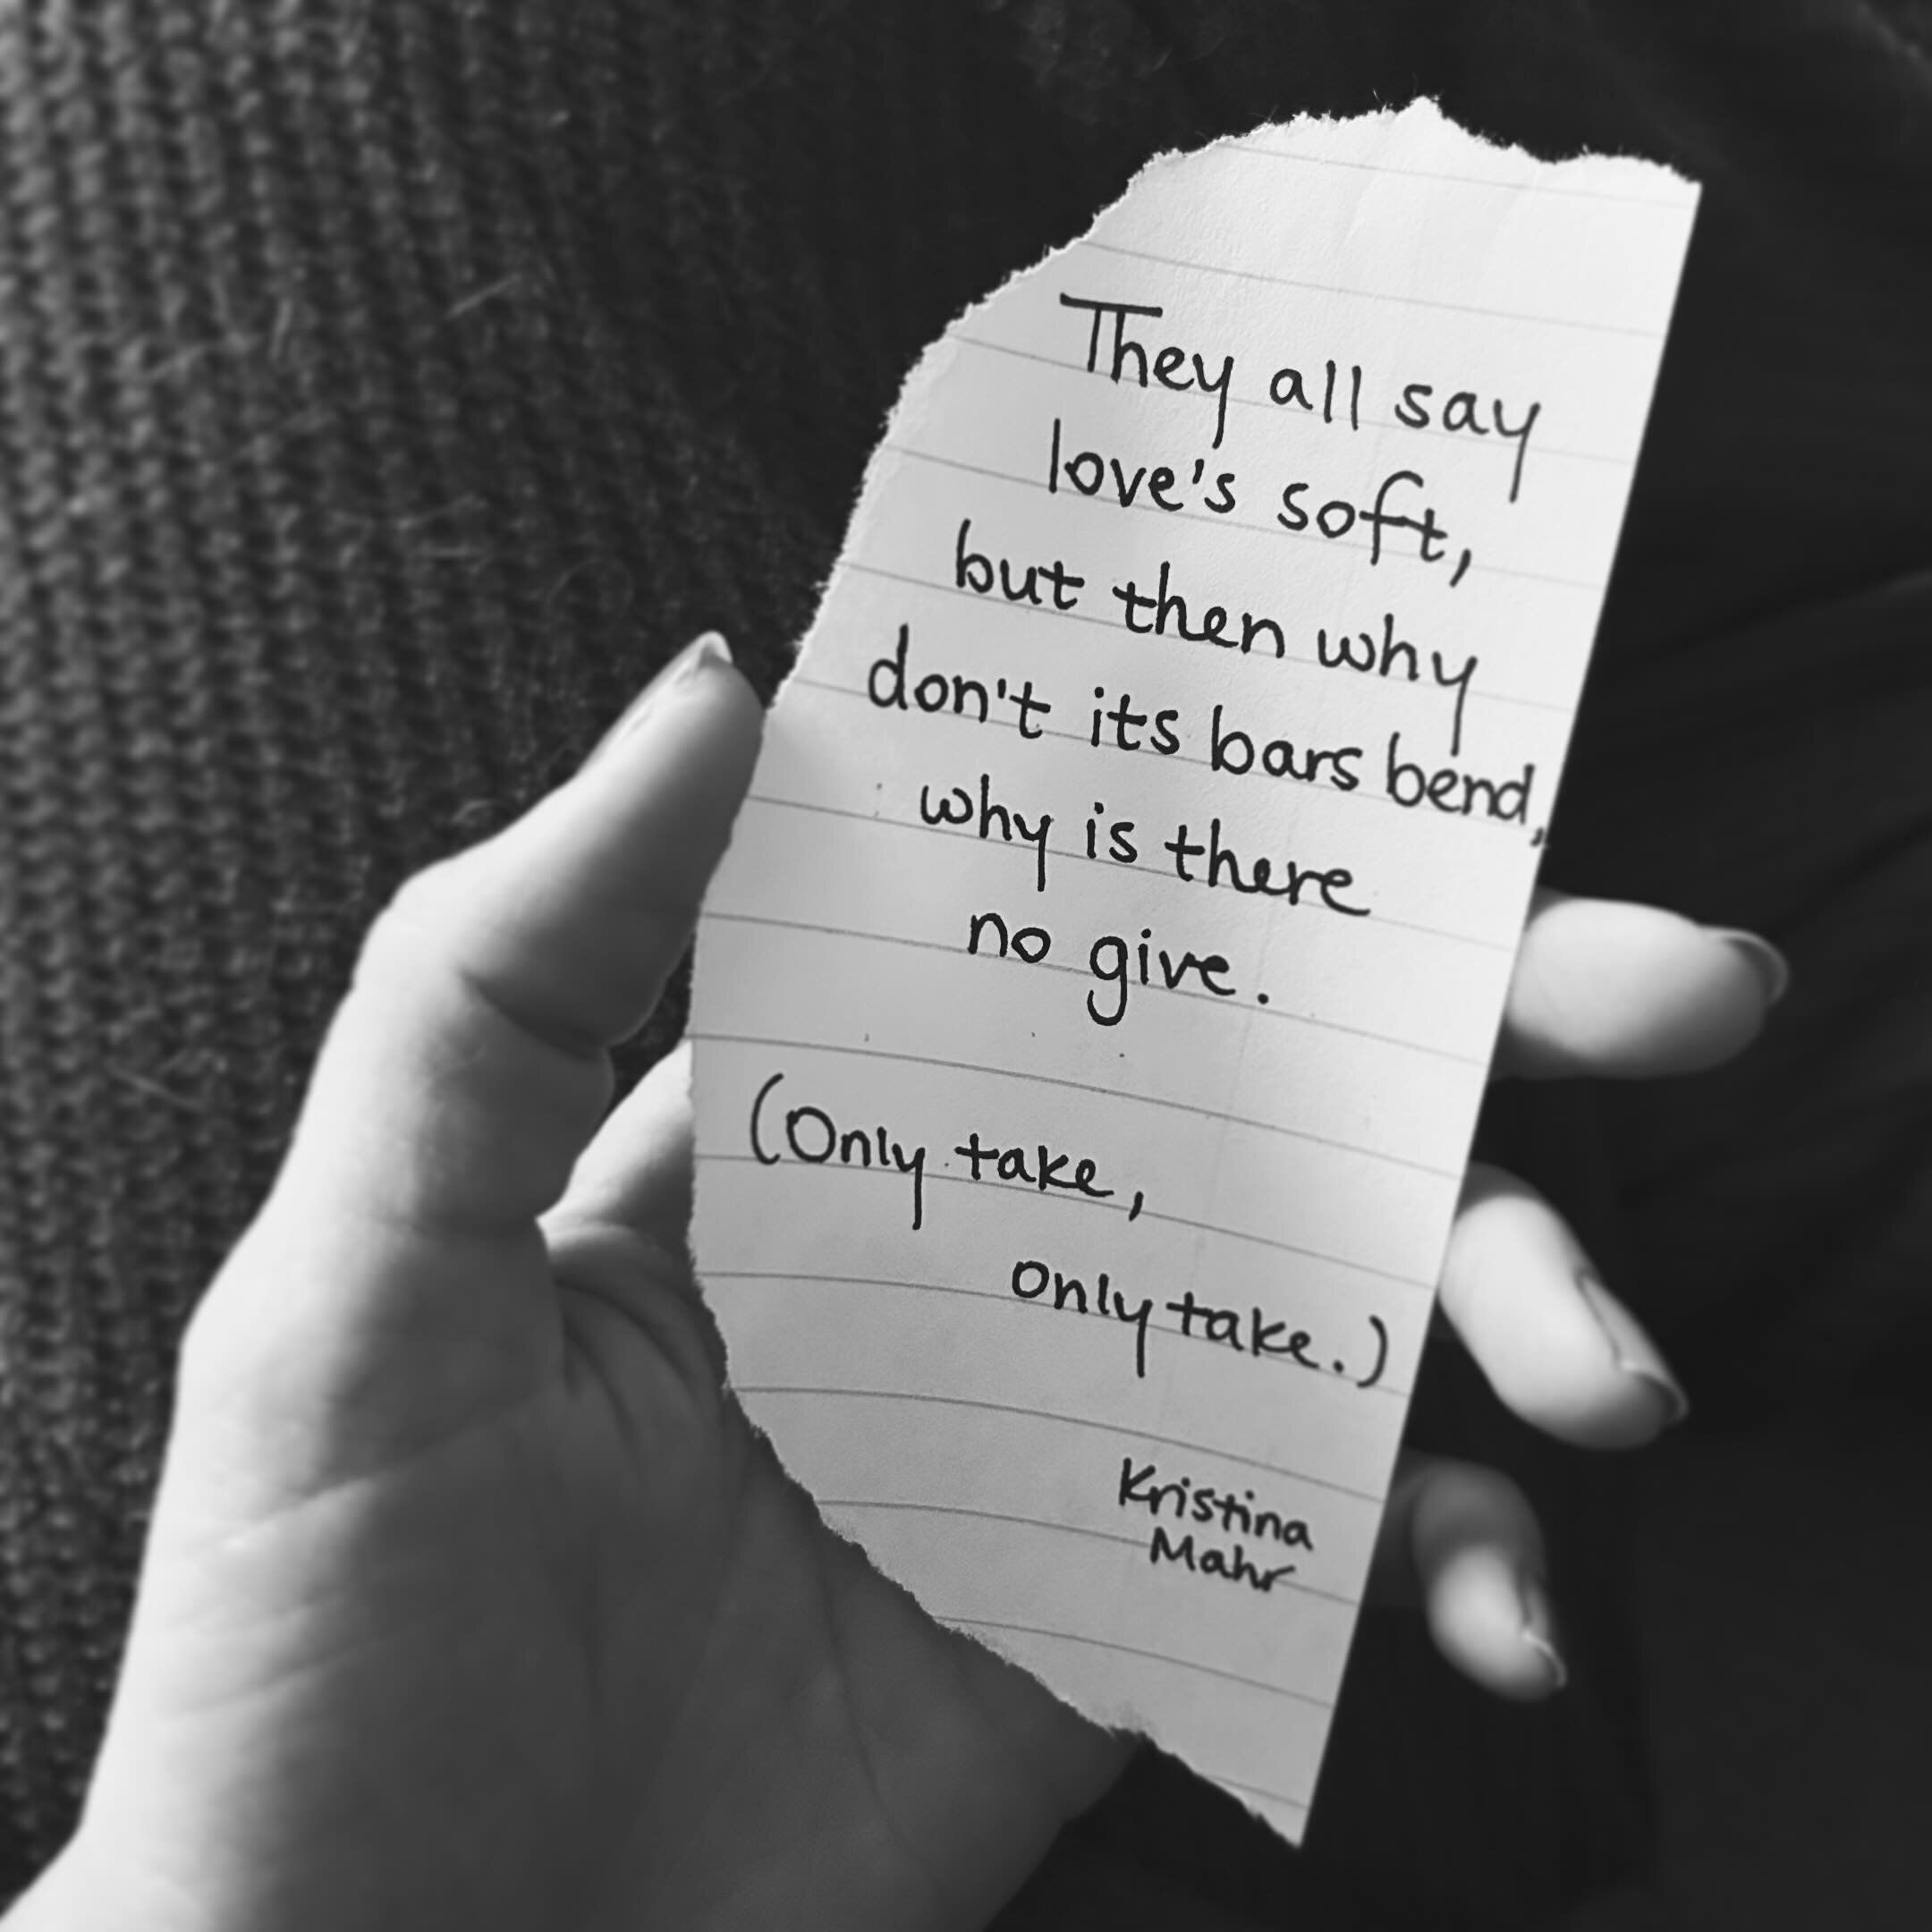 They all say
love's soft,
but then why
don't its bars bend,
why is there
no give.
(Only take,
only take.)
Kristina
Mahr